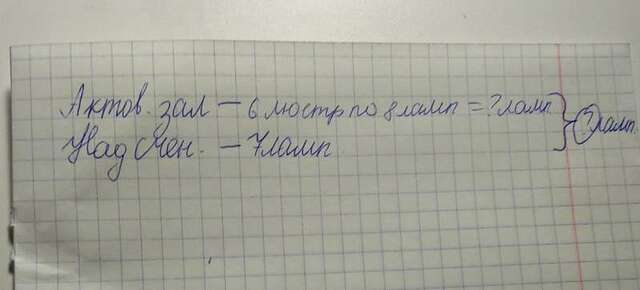 Актов. зал – 6 люстр по 8 ламп = ? ламп } ? ламп.
Над сцен. – 7 ламп